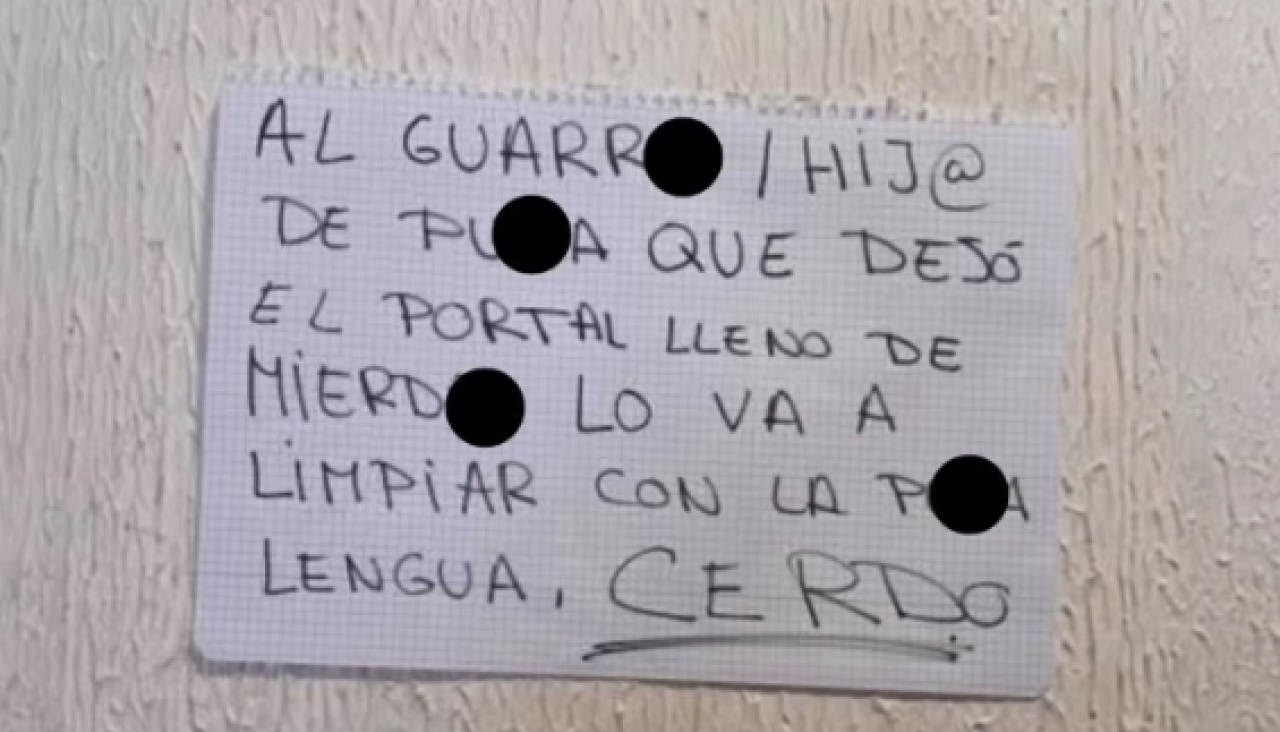 AL GUARR /HIJ@
DE PU A QUE DEJÓ
EL PORTAL LLENO DE
MIERD LO VA A
LIMPIAR CON LA P A
LENGUA, CERDO